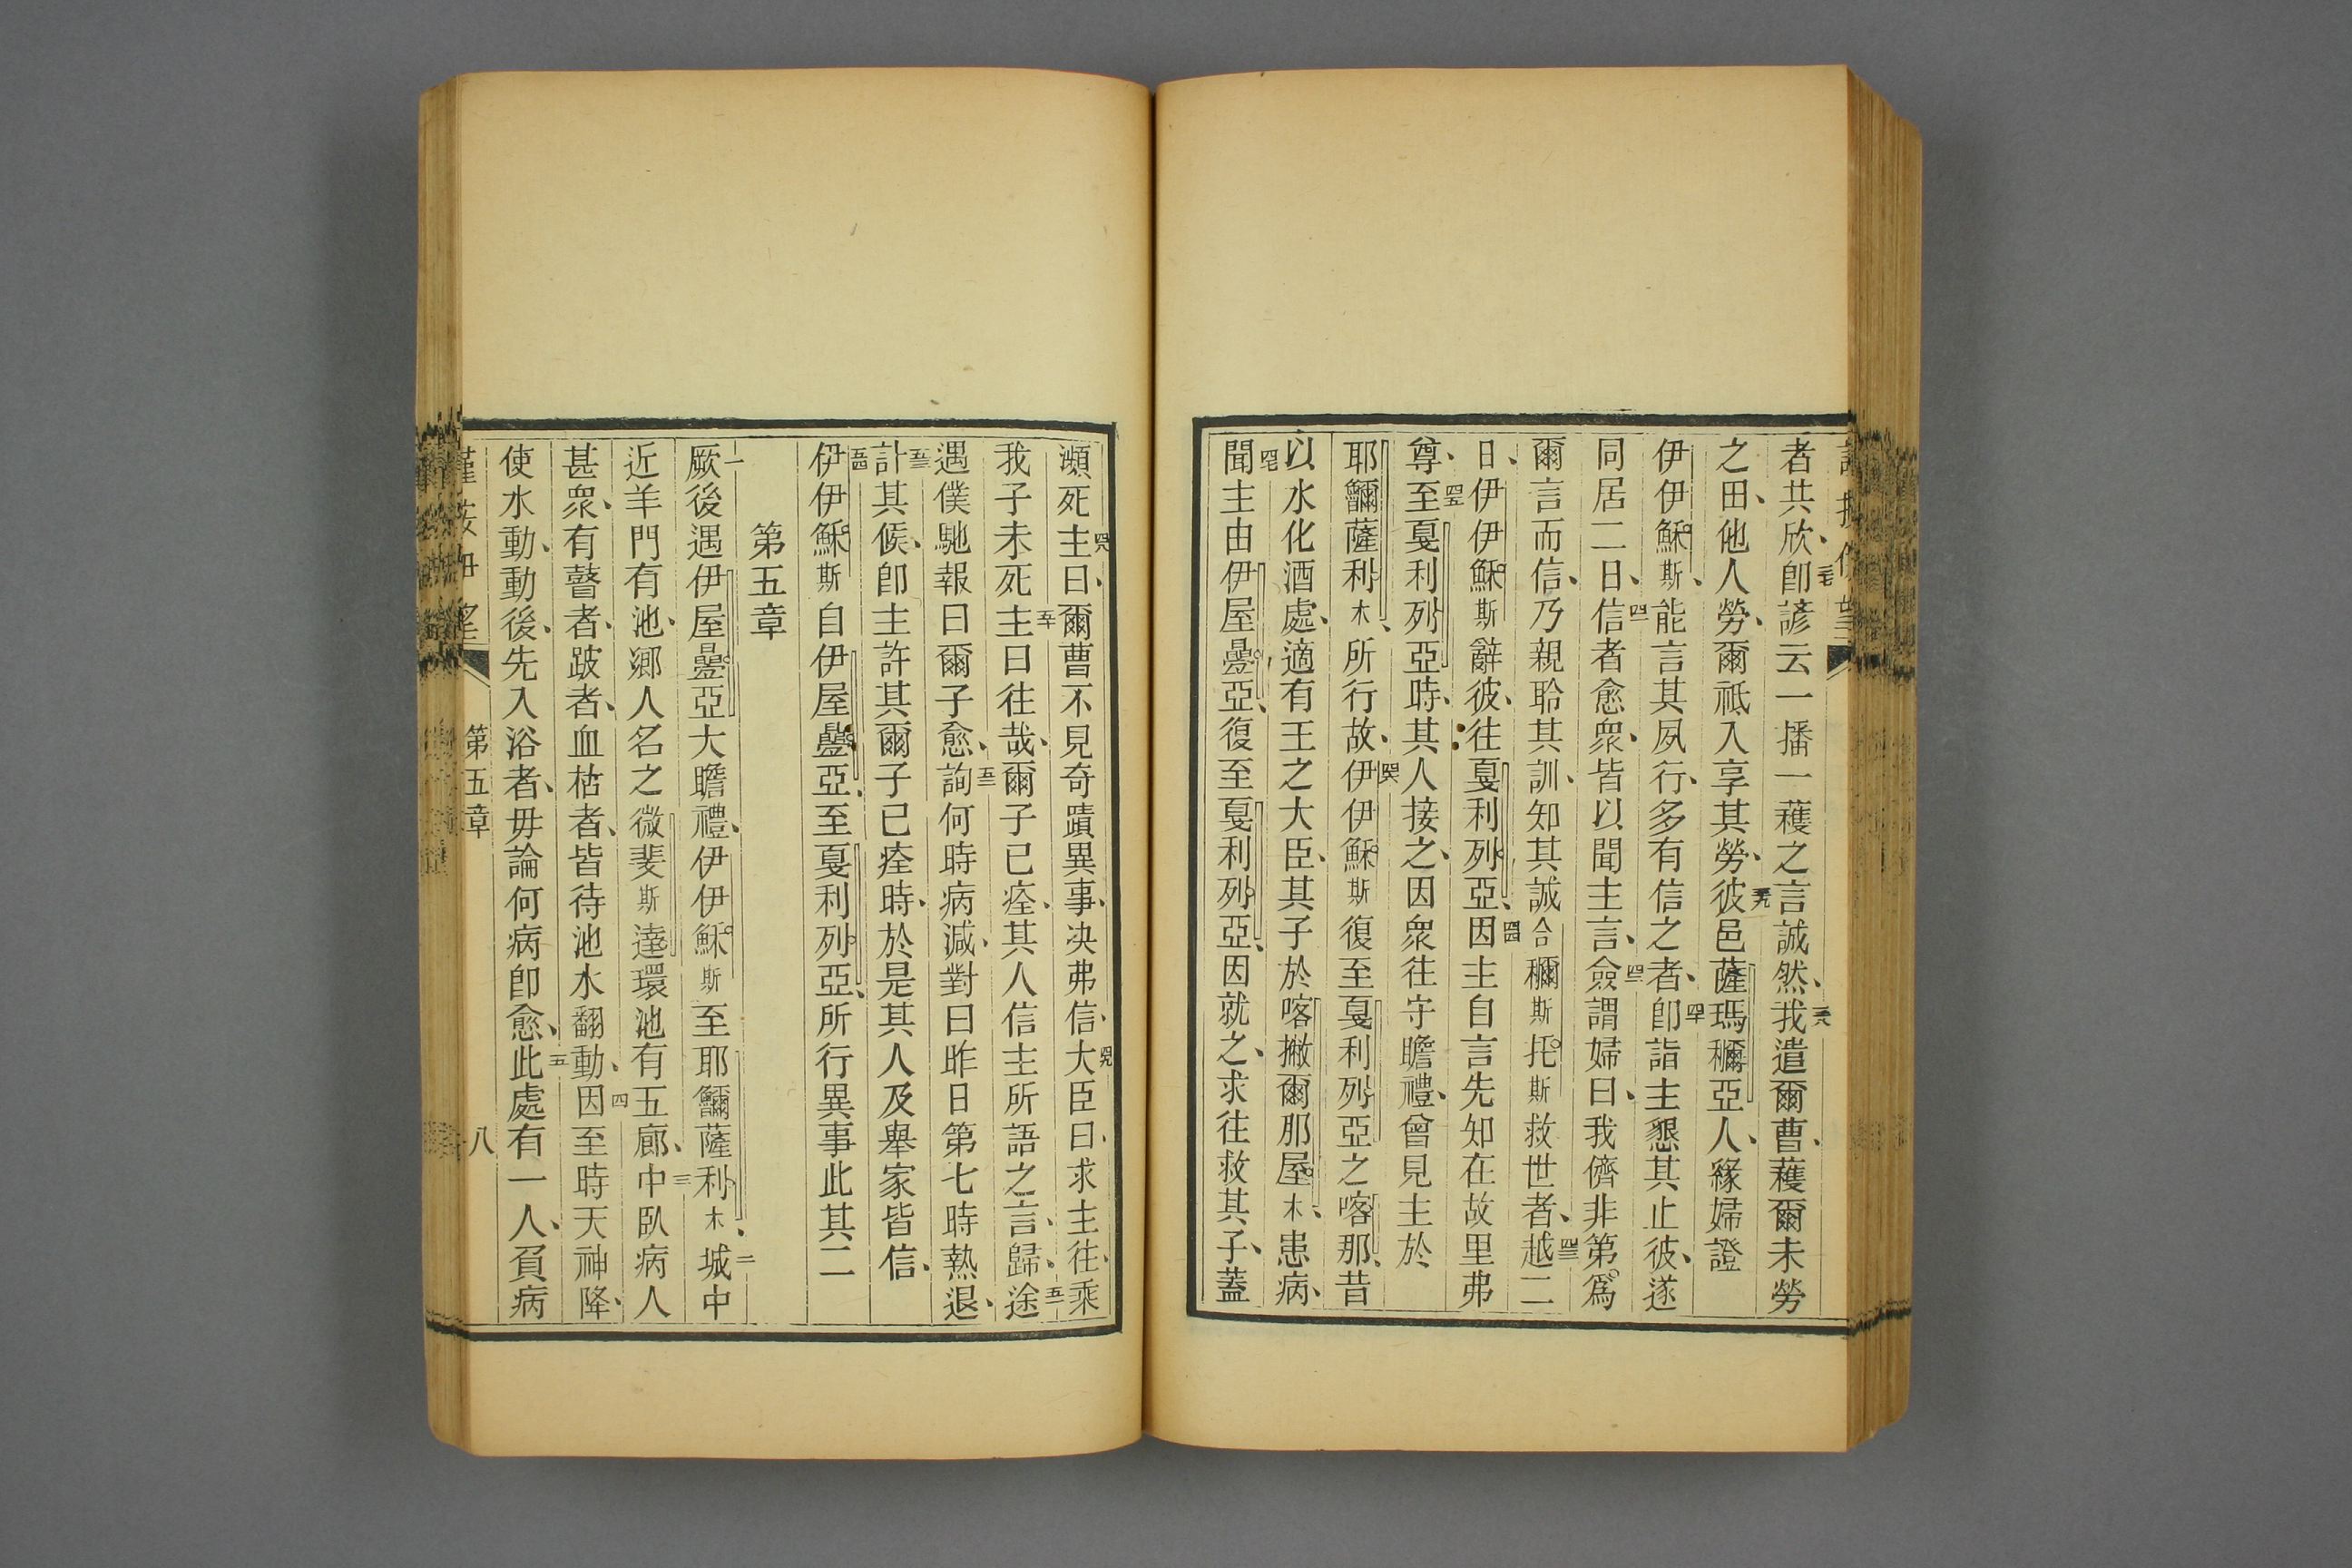 者共欣、三七卽諺云一播一穫之言誠然、三八我遣爾曹、穫爾未勞
之田、他人勞、爾祗入享其勞、三九彼邑薩瑪穪亞人、緣婦證
伊伊穌斯、能言其夙行、多有信之者、四十卽詣主懇其止彼、遂
同居二日、四一信者愈衆、皆以聞主言、四二僉謂婦曰、我儕非第爲
爾言而信、乃親聆其訓、知其誠合穪斯托斯救世者、四三越二
日、伊伊穌斯辭彼、往戛利列亞、四四因主自言先知在故里弗
尊、四五至戛利列亞時、其人接之、因衆往守瞻禮、曾見主於
耶爾薩利木、所行故、四六伊伊穌斯復至戛利列亞之喀那、昔
以水化酒處、適有王之大臣、其子於喀撇爾那屋木、患病、
四七聞主由伊屋疊亞、復至戛利列亞、因就之、求往救其子、蓋
瀕死、四八主曰、爾曹不見奇蹟異事、决弗信、四九大臣曰、求主往、乘
我子未死、五十主曰往哉、爾子已痊、其人信主所語之言、歸、五一途
遇僕馳報曰爾子愈、五二詢何時病減、對曰昨日第七時熱退、
五三計其候、卽主許其爾子已痊時、於是其人及舉家皆信、
五四伊伊穌斯自伊屋疊亞、至戛利列亞、所行異事此其二
第五章
一厥後遇伊屋疊亞大瞻禮、伊伊穌斯至耶爾薩利木、二城中
近羊門有池、鄉人名之微斐斯達環池有五廊、三中臥病人
甚衆、有瞽者、跛者、血枯者、皆待池水翻動、四因至時天神降、
使水動、動後、先入浴者、毋論何病卽愈、五此處有一人、負病
第五章
八